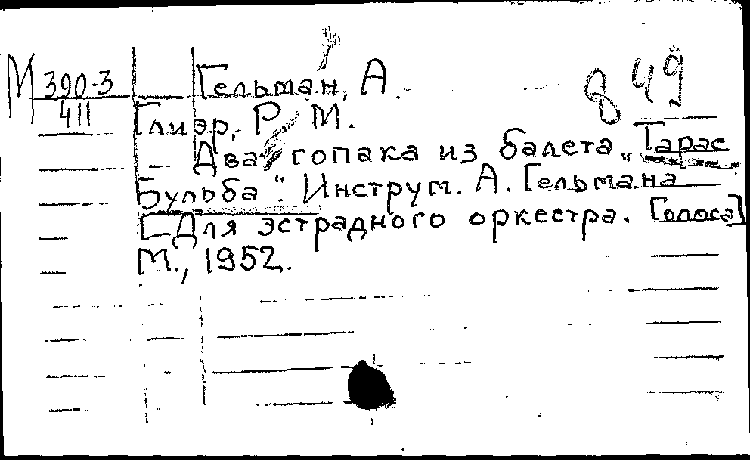 М 390-3 Гельман, А.
411 8 49
Глиэр, Р. М.
Два гопака из балета „Тарас
Бульба". Инструм. А. Гельмана
[-Для эстрадного оркестра. Голоса]
М., 1952.